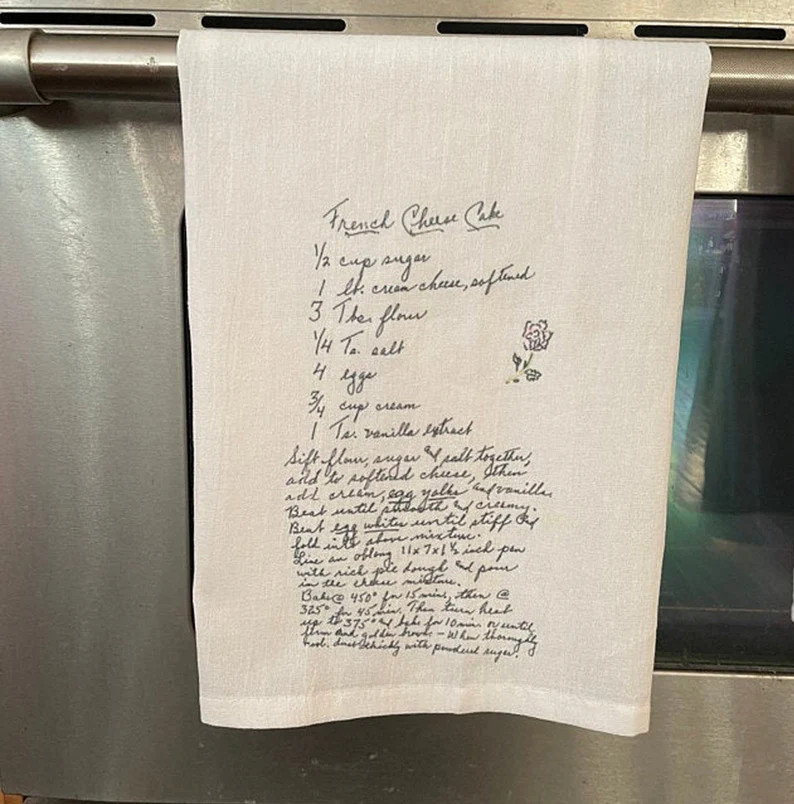 French Cheese Cake
1/2 cup sugar
1 lb. cream cheese, softened
3 Tbs. flour
1/4 Ts. salt
4 eggs
3/4 cup cream
1 Ts. vanilla extract
Sift flour, sugar and salt together,
add to softened cheese, then
add cream, egg yolks and vanilla.
Beat until smooth and creamy.
Beat egg whites until stiff and
fold into above mixture.
Line an oblong 11x7x1 1/2 inch pan
with rich pie dough and pour
in the cheese mixture.
Bake @ 450° for 15 mins, then @
325° for 45 min. Then turn heat
up to 375° and bake for 10 min. or until
firm and golden brown – When thoroughly
cool, dust thickly with powdered sugar.